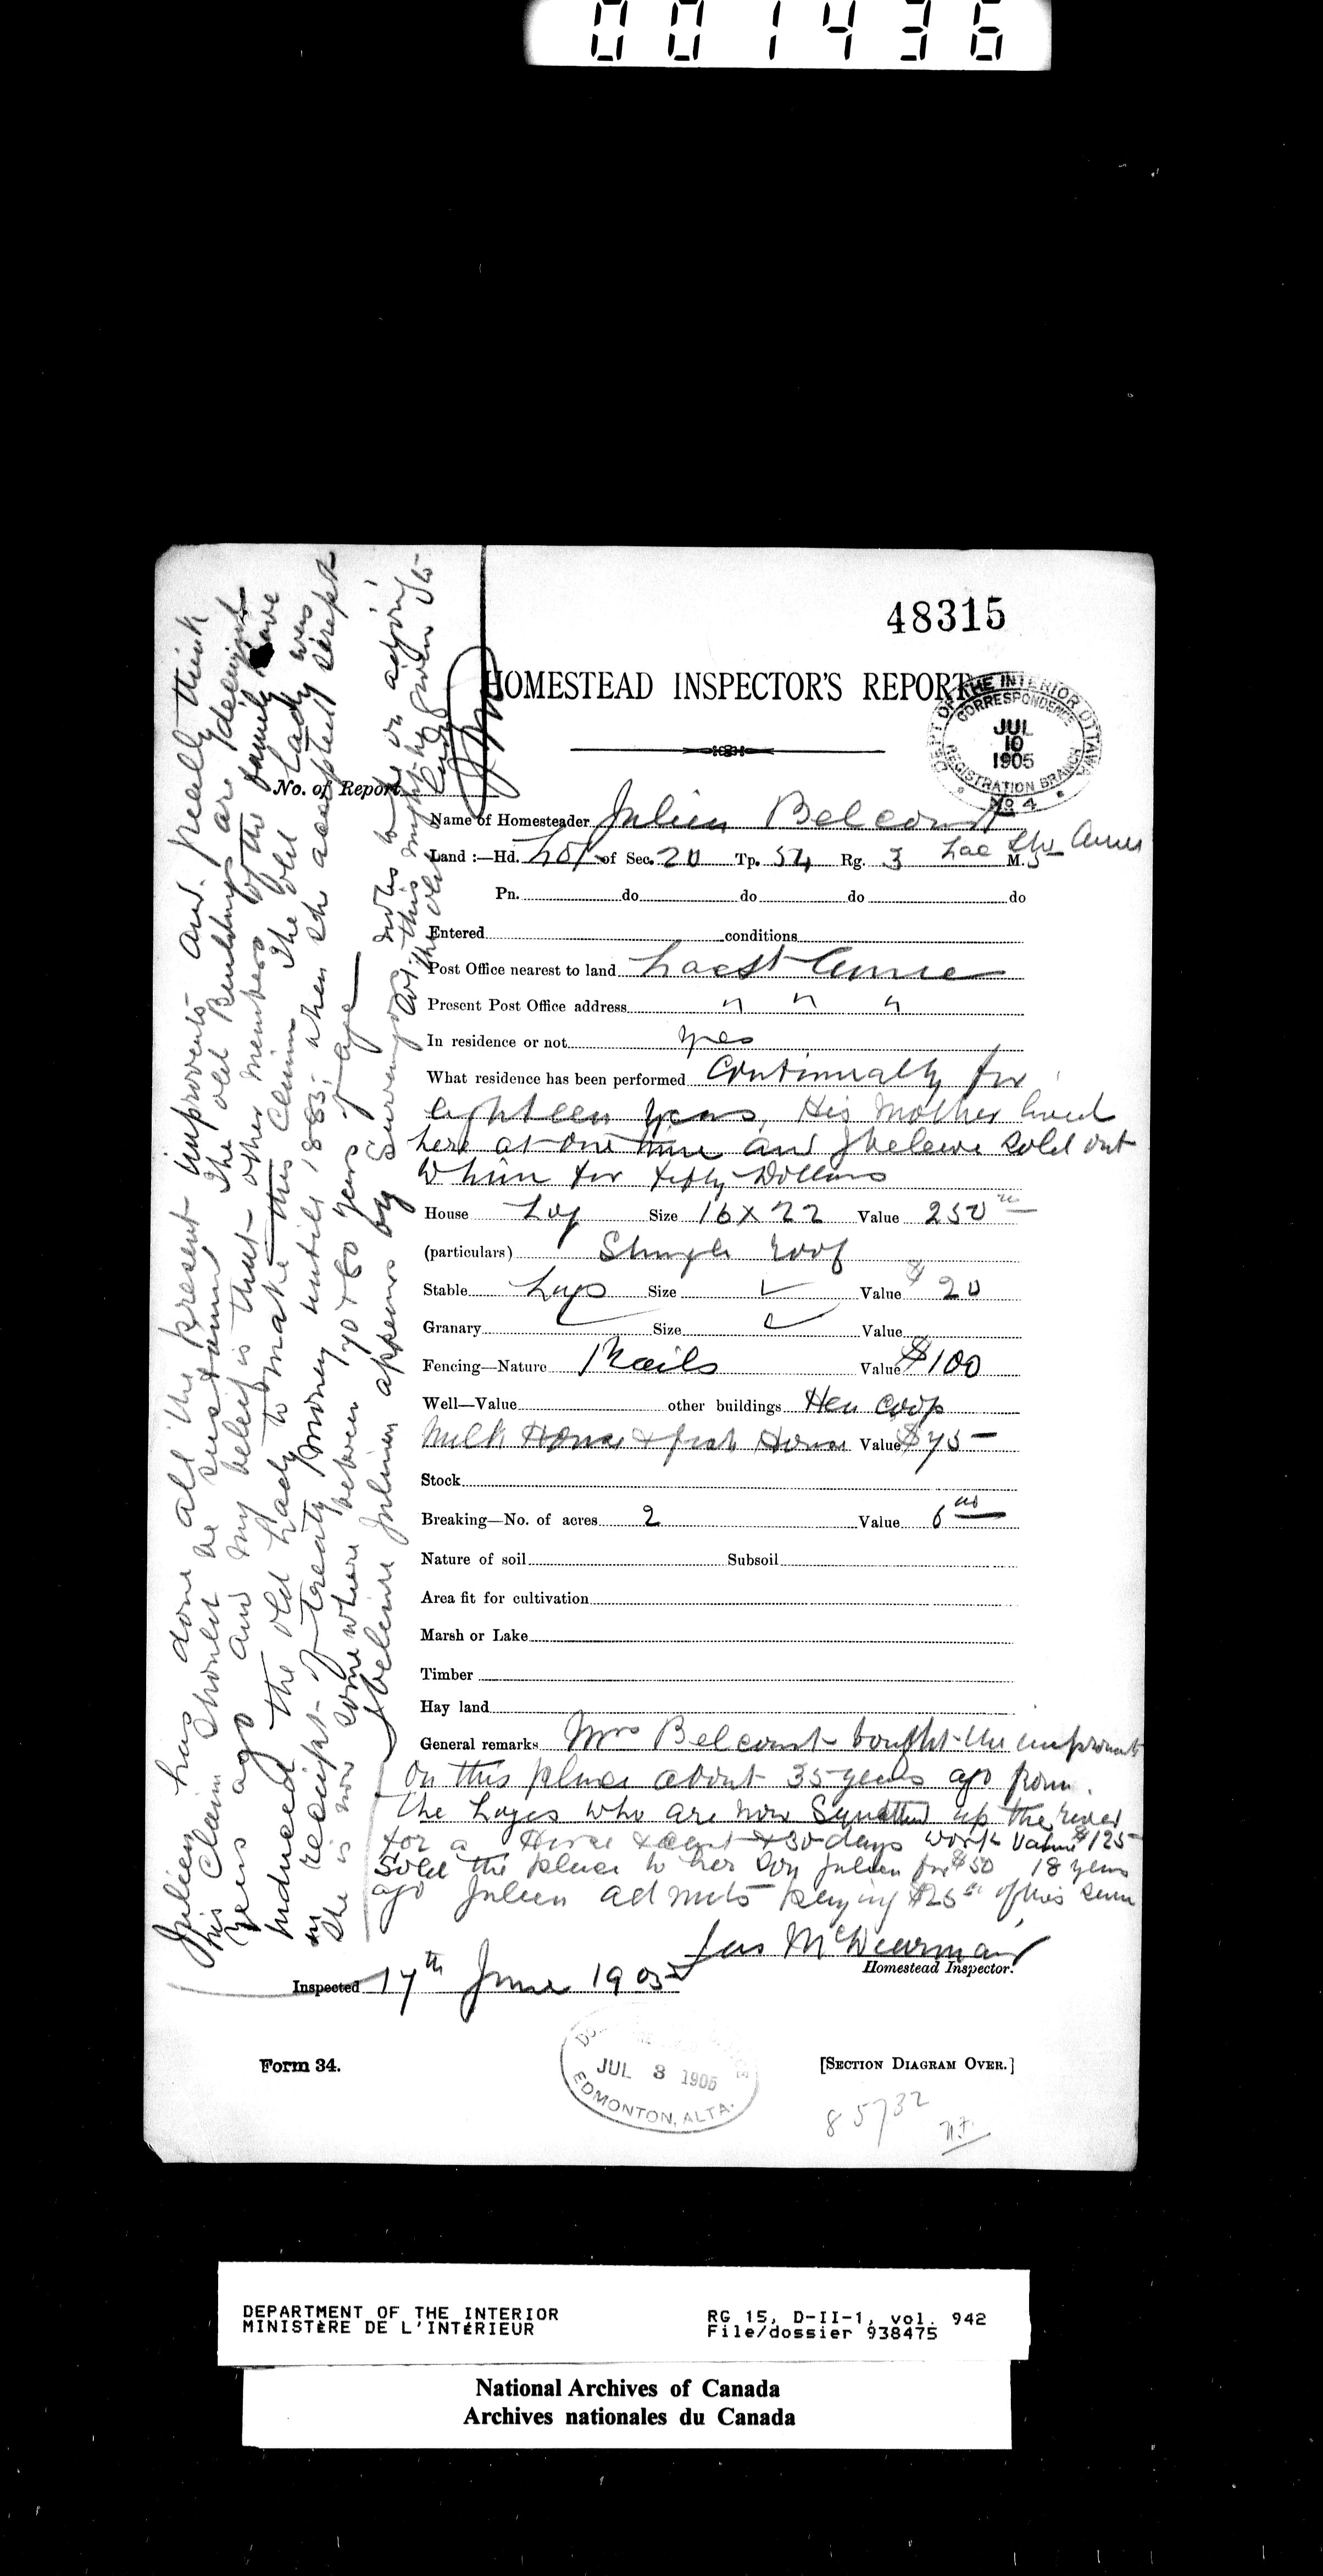 001436
48315
HOMESTEAD INSPECTOR'S REPORT
DEPT OF THE INTERIOR OTTAWA
CORRESPONDENCE
JUL
10
1905
REGISTRATION BRANCH
No 4
No. of Report
Name of Homesteader Julien Belcourt
Land :—Hd. Lot of Sec. 20 Tp. 54 Rg. 3 M. 5 Lac Ste Annes
Pn. do do do do
Entered conditions
Post Office nearest to land Lac St Anne
Present Post Office address " " "
In residence or not yes
What residence has been performed Continually for
eighteen years, His Mother lived
here at one time and I beleive sold out
to him for fifty Dollars
House Log Size 16 X 22 Value 250 00
(particulars) Shingle roof
Stable Logs Size Value $ 20
Granary Size Value
Fencing—Nature Rails Value $100
Well—Value other buildings Hen coop
Milk House & fish House Value $75 –
Stock
Breaking—No. of acres 2 Value 6 00
Nature of soil Subsoil
Area fit for cultivation
Marsh or Lake
Timber
Hay land
General remarks Mrs Belcourt bought the improvmts
on this place about 35 years ago from
the who are now Squatted up the river
for a Horse & & 30 days work value $125
Sold the place to her Son Julien for $50 18 years
ago Julien admits paying $25 of this sum
Jas McDearmand
Homestead Inspector.
Inspected 17th June 1905
Julien has done all the present improvents and really think
his Claim should be sustained The old Buildings are
years ago and my beleif is that other members of the family have
induced the old Lady to make this Claim The old Lady was
in receipt of treaty money until 1885 when she accepted scrip
She is now some where between 70 & 80 years of age
I beleive Julien appears by Surveyors notes to be on
this might be given to
the old Lady
Form 34.
[SECTION DIAGRAM OVER.]
JUL 8 1905
EDMONTON, ALTA.
85732
DEPARTMENT OF THE INTERIOR RG 15, D-II-1, vol. 942
MINISTÈRE DE L'INTÉRIEUR File/dossier 938475
National Archives of Canada
Archives nationales du Canada